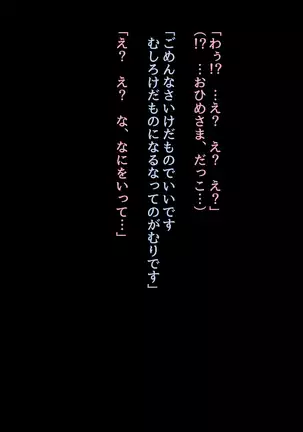 「わぅ!?　…え？　え？　え？」
(!?　…おひめさま、だっこ…)
「ごめんなさいけだものでいいです
むしろけだものになるなってのがむりです」
「え？　え？　な、なにをいって…」